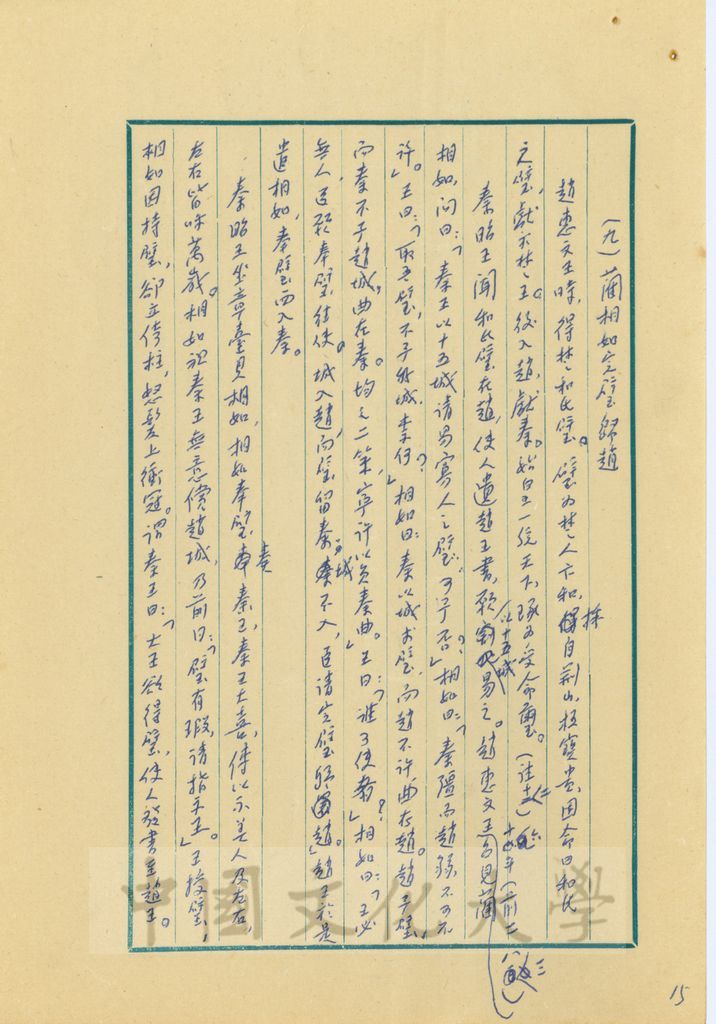 (九)藺相如完璧歸趙
趙惠文王時,得楚和氏璧。璧為楚人卞和,採自荊山,極寶貴,因命曰和氏
之璧,獻於楚王。後入趙,獻秦。始皇一統天下,琢為受命璽。(註
秦昭王聞和氏璧在趙,使人遺趙王書,願以十五城易之。趙惠文王召見藺
相如,問曰:「秦王以十五城請易寡人之璧。可予否?」相如曰:「秦彊而趙弱,不可不
許。」王曰:「取吾璧,不予我城,奈何?」相如曰:秦以城求璧,而趙不許曲在趙。趙予璧,
而秦不予趙城,曲在秦。均之二策,寧許以負秦曲。」王曰:「誰可使者?」相如曰:「王必
無人,臣願奉璧往使。城入趙,而璧留秦,城不入,臣請完璧歸趙。」趙王於是
遣相如,奉璧西入秦。
秦昭王坐章臺見相如,相如奉璧奏秦王,秦王大喜,傳以示美人及左右,
左右皆呼萬歲。相如視秦王無意償趙城,乃前曰:「璧有瑕,請指示王。」王授璧,
相如因持璧,卻立倚柱,怒髮上衝冠。謂秦王曰:「大王欲得璧,使人發書至趙王。
中國文化大學
15